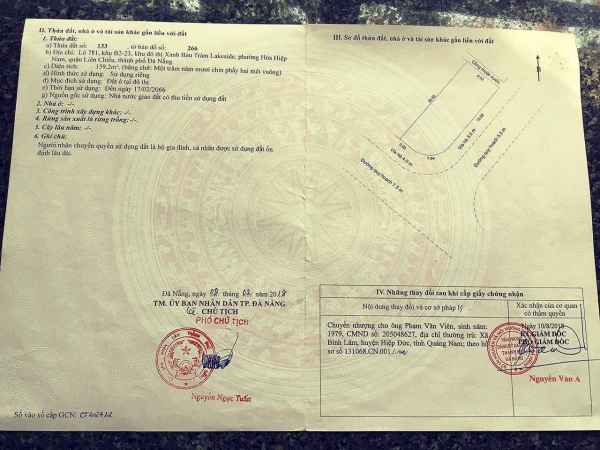 II. Thửa đất, nhà ở và tài sản khác gắn liền với đất
1. Thửa đất:
a) Thửa đất số: 133 , tờ bản đồ số: 266
b) Địa chỉ: Lô 781, khu B2-23, khu đô thị Xanh Bàu Tràm Lakeside, phường Hòa Hiệp
Nam, quận Liên Chiểu, thành phố Đà Nẵng
c) Diện tích: 159,2m², (bằng chữ: Một trăm năm mươi chín phẩy hai mét vuông)
d) Hình thức sử dụng: Sử dụng riêng
đ) Mục đích sử dụng: Đất ở tại đô thị
e) Thời hạn sử dụng: Đến ngày 17/02/2066
g) Nguồn gốc sử dụng: Nhà nước giao đất có thu tiền sử dụng đất
2. Nhà ở: -/-
3. Công trình xây dựng khác: -/-
4. Rừng sản xuất là rừng trồng: -/-
5. Cây lâu năm: -/-
6. Ghi chú:
Người nhận chuyển quyền sử dụng đất là hộ gia đình, cá nhân được sử dụng đất ổn
định lâu dài.
Đà Nẵng, ngày 08 tháng 02 năm 2018
TM. ỦY BAN NHÂN DÂN TP. ĐÀ NẴNG
CHỦ TỊCH
PHÓ CHỦ TỊCH
Nguyễn Ngọc Tuấn
Số vào sổ cấp GCN:
III. Sơ đồ thửa đất, nhà ở và tài sản khác gắn liền với đất
B
Cống thoát nước
5.00
7.64
Vỉa hè 4.0 m
Vỉa hè 3.0 m
Đường quy hoạch 7.5 m
Đường quy hoạch 5.5 m
IV. Những thay đổi sau khi cấp giấy chứng nhận
Nội dung thay đổi và cơ sở pháp lý
Xác nhận của cơ quan
có thẩm quyền
Chuyển nhượng cho ông Phạm Văn Viên, sinh năm:
1979, CMND số: 205048627, địa chỉ thường trú: Xã
Bình Lâm, huyện Hiệp Đức, tỉnh Quảng Nam; theo hồ
sơ số 131068.CN.001
Ngày 10/8/2018
KT.GIÁM ĐỐC
PHÓ GIÁM ĐỐC
Nguyễn Văn A